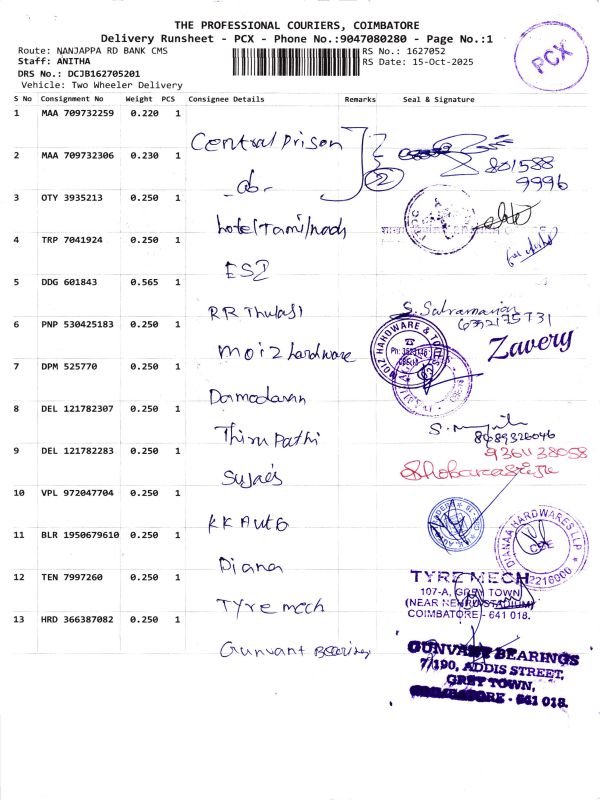 THE PROFESSIONAL COURIERS, COIMBATORE
Delivery Runsheet - PCX - Phone No.:9047080280 - Page No.:1
PCX
Route: NANJAPPA RD BANK CMS
RS No.: 1627052
Staff: ANITHA
RS Date: 15-Oct-2025
DRS No.: DCJB162705201
Vehicle: Two Wheeler Delivery
S No Consignment No Weight PCS Consignee Details Remarks Seal & Signature
1 MAA 709732259 0.220 1 Central Prison
2 MAA 709732306 0.230 1 -do- 2 801588
9996
3 OTY 3935213 0.250 1 hotel Tamilnadu
4 TRP 7041924 0.250 1 ESI
5 DDG 601843 0.565 1 RR Thulasi
6 PNP 530425183 0.250 1 Moiz hardware MOIZ HARDWARE & TOOLS Zavery
7 DPM 525770 0.250 1 Damodaran
8 DEL 121782307 0.250 1 Thirupathi
9 DEL 121782283 0.250 1 Sujaes 9361138058
10 VPL 972047704 0.250 1 KK Auto
11 BLR 1950679610 0.250 1 Diana DIANAA HARDWARES LLP CBE
12 TEN 7997260 0.250 1 Tyre mech TYRE MECH
107-A, GREY TOWN
(NEAR NEHRU STADIUM)
COIMBATORE - 641 018.
13 HRD 366387082 0.250 1 Gunvant Bearings GUNVANT BEARINGS
7/190, ADDIS STREET,
GREY TOWN,
COIMBATORE - 641 018.